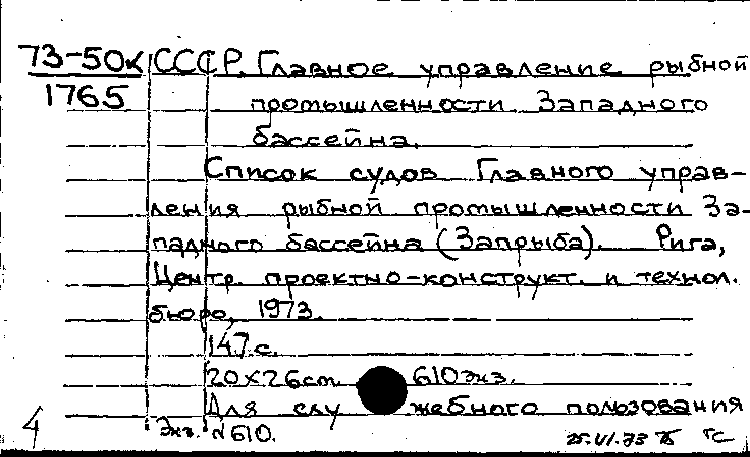 73-50к СССР. Главное управление рыбной
1765 промышленности Западного
бассейна.
Список судов Главного управ-
ления рыбной промышленности За-
падного бассейна (Запрыба). Рига,
Центр. проектно-конструкт. и технол.
бюро, 1973.
147 с.
20x26см 610 экз.
Для служебного пользования
4 Экз. №610. 25.VI.73